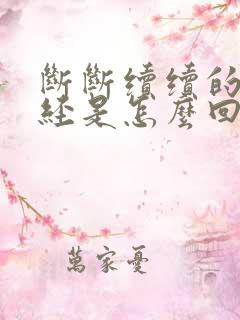 斷斷續續的
經是怎麼回
萬家憂